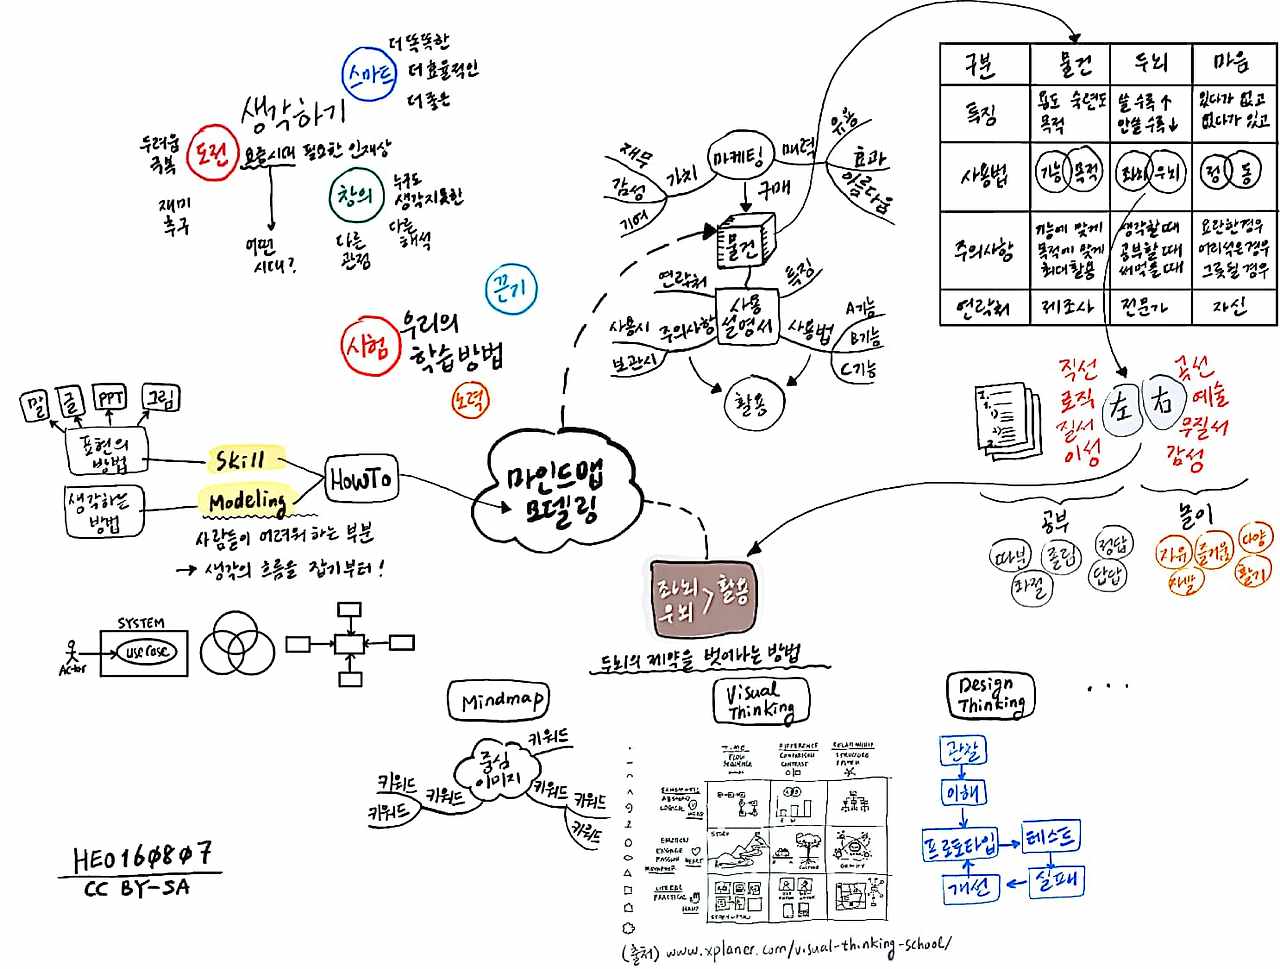 더 똑똑한
스마트
더 효율적인
더 좋은
생각하기
두려움
극복
도전
요즘시대 필요한 인재상
재미
추구
창의
누구도
생각지못한
다른
관점
다른
해석
어떤
시대?
끈기
시험
우리의
학습방법
노력
말
글
PPT
그림
표현의
방법
생각하는
방법
Skill
Modeling
HowTo
사람들이 어려워 하는 부분
→ 생각의 흐름을 잡기부터!
마인드맵
모델링
SYSTEM
use case
Actor
재무
감성
기여
가치
마케팅
매력
유용
효과
아름다움
구매
물건
연락처
특징
사용
설명서
사용시
보관시
주의사항
사용법
A기능
B기능
C기능
활용
구분
물건
두뇌
마음
특징
용도 숙련도
목적
쓸 수록↑
안쓸 수록↓
있다가 없고
없다가 있고
사용법
기능
목적
좌뇌
우뇌
정
동
주의사항
기능에 맞게
목적에 맞게
최대활용
생각할때
공부할때
써먹을때
요란한경우
어리석은경우
그릇될경우
연락처
제조사
전문가
자신
직선
로직
질서
이성
左
右
곡선
예술
무질서
감성
공부
따분
졸림
정답
좌절
답답
놀이
자유
즐거움
다양
자발
활기
좌뇌
우뇌 > 활용
두뇌의 제약을 벗어나는 방법
Mindmap
Visual
Thinking
Design
Thinking
...
중심
이미지
키워드
키워드
키워드
키워드
키워드
키워드
키워드
TIME
FLOW
SEQUENCE
DIFFERENCE
COMPARISON
CONTRAST
RELATIONSHIP
STRUCTURE
SYSTEM
SCHEMATIC
ABSTRACT
LOGICAL
HEAD
EMOTION
ENGAGE
PASSION
HEART
METAPHOR
LITERAL
PRACTICAL
HAND
STORY
관찰
이해
프로토타입
테스트
개선
실패
HE0160807
CC BY-SA
(출처) www.xplaner.com/visual-thinking-school/